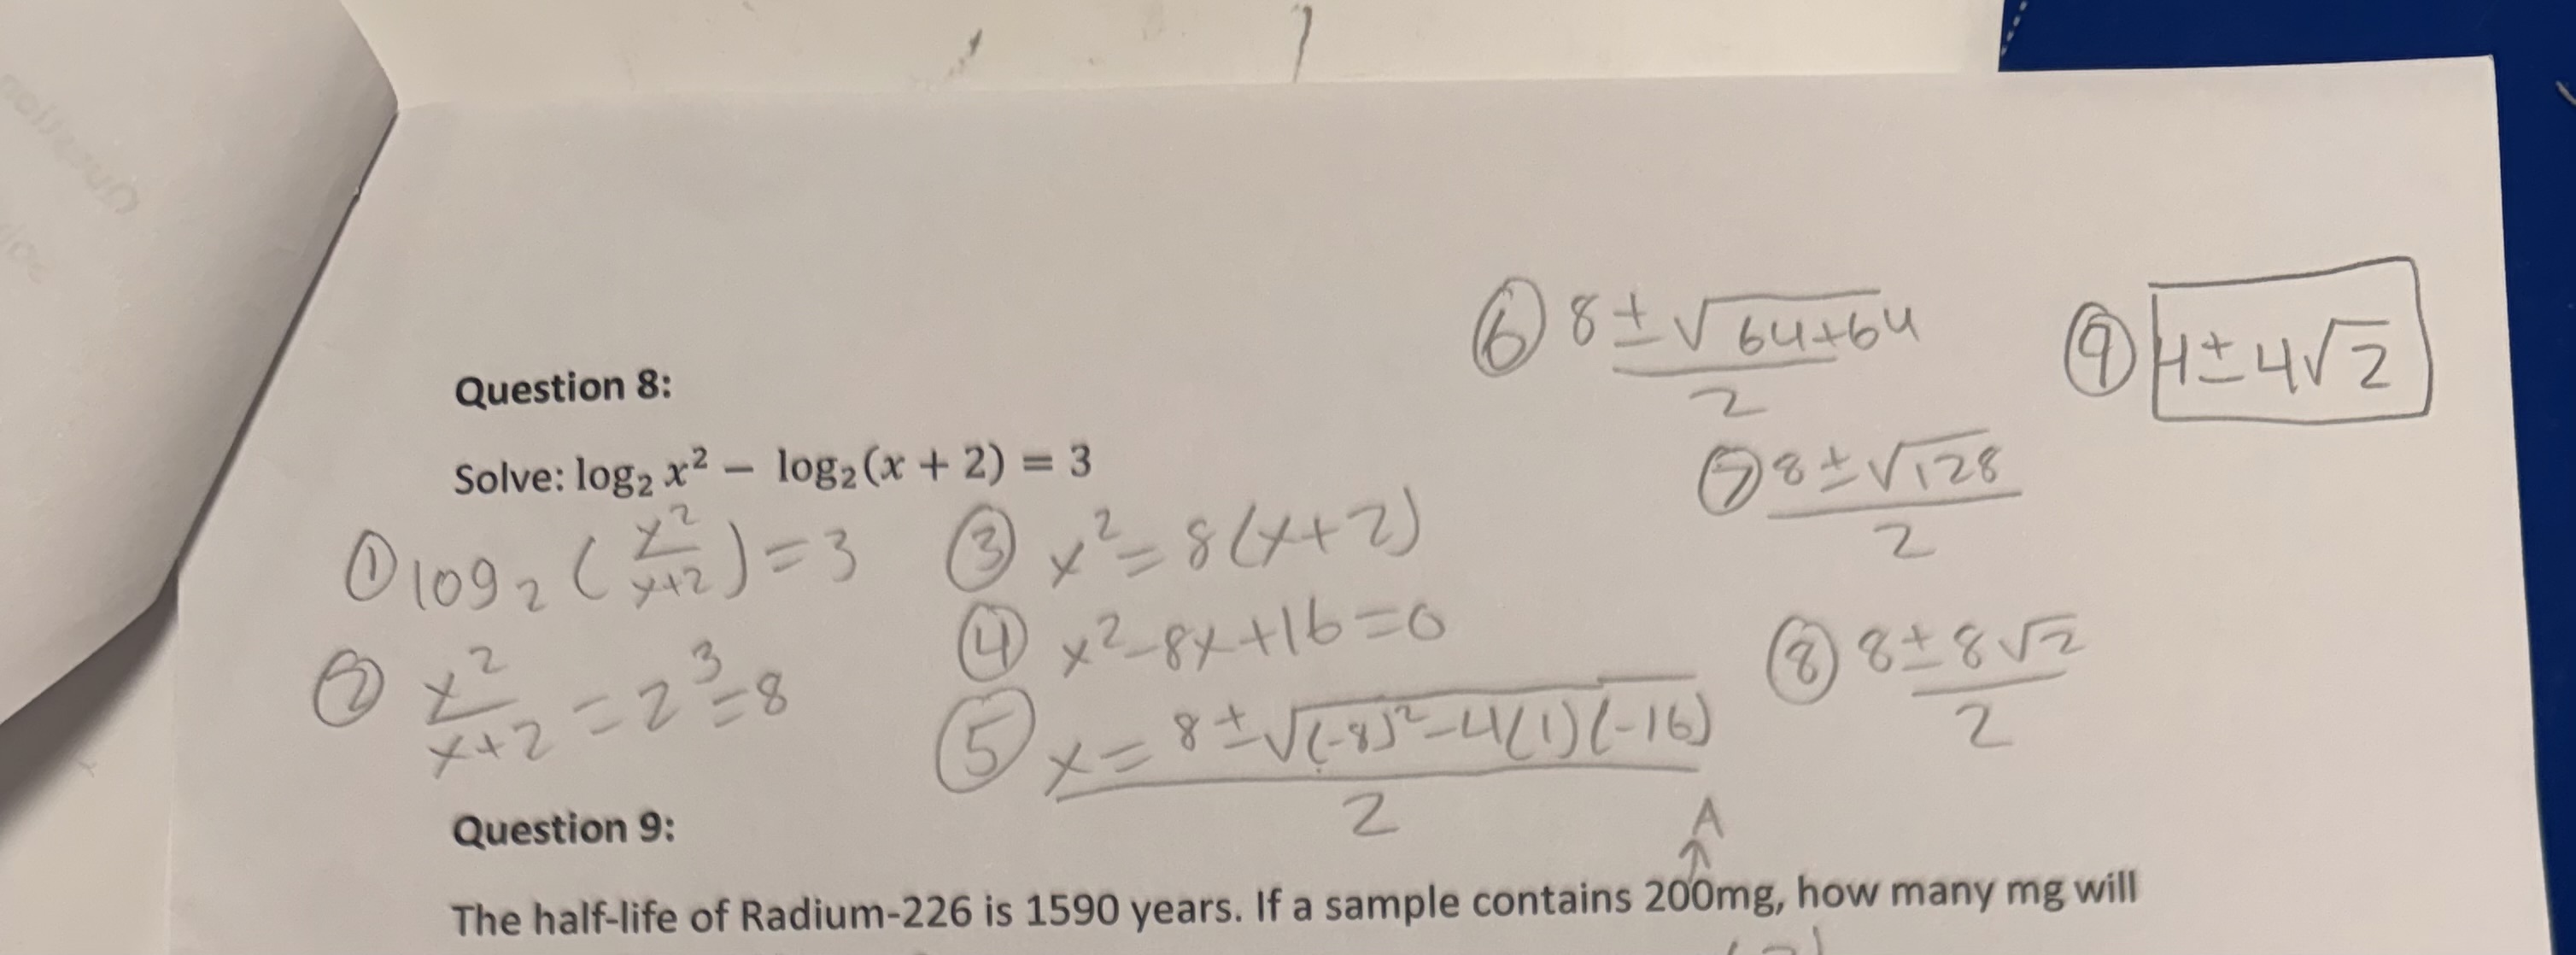 Question 8:
Solve: log₂ x² − log₂(x + 2) = 3
① log₂ (x²/(x+2)) = 3
② x²/(x+2) = 2³ = 8
③ x² = 8(x+2)
④ x² - 8x + 16 = 0
⑤ x = (8 ± √((-8)² - 4(1)(-16)))/2
⑥ (8 ± √(64+64))/2
⑦ (8 ± √128)/2
⑧ (8 ± 8√2)/2
⑨ 4 ± 4√2
Question 9:
A
↑
The half-life of Radium-226 is 1590 years. If a sample contains 200mg, how many mg will